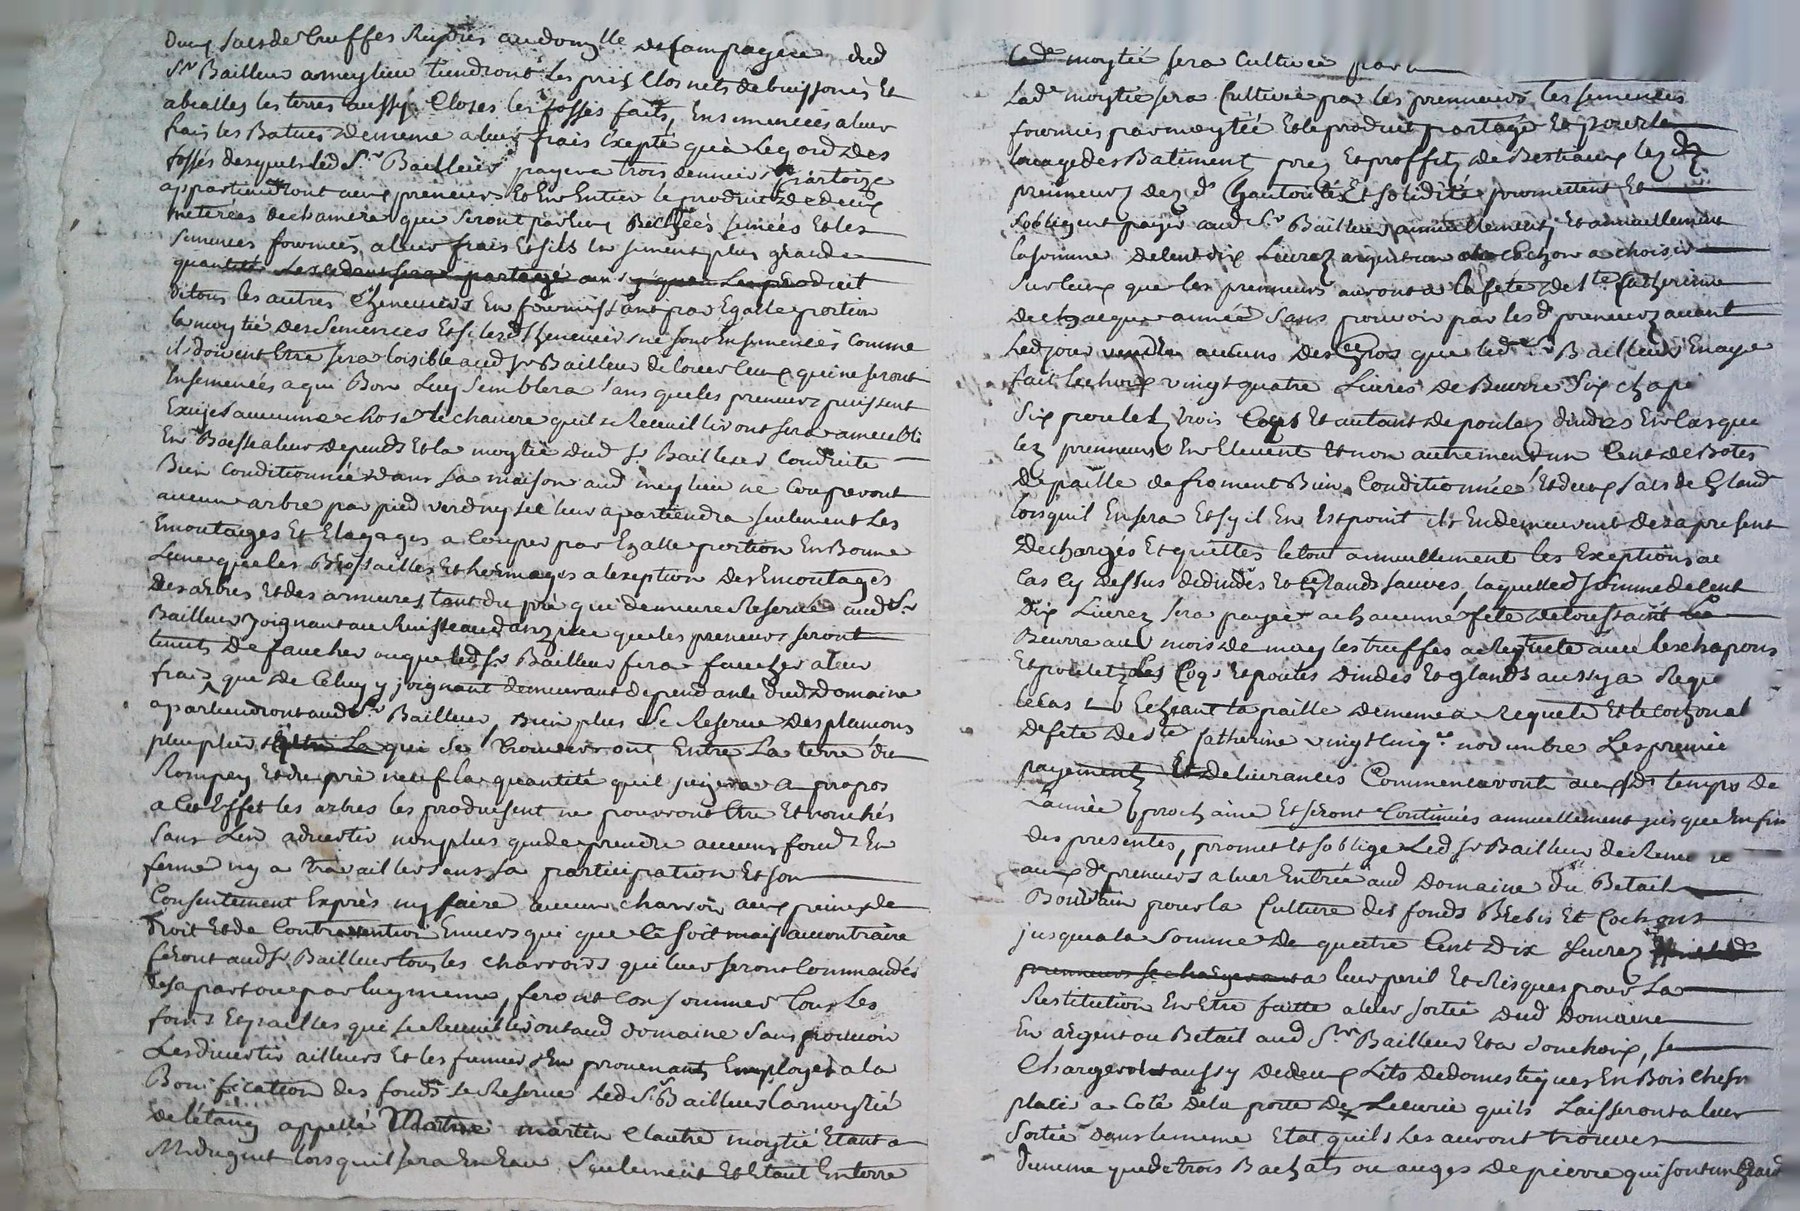 deux sacs de truffes rendus au domlle de campagne dud
Sr Bailleur a meylieu tiendront les prés clos nets de buissons et
les terres aussy closes les fossés faits, ensemencés a leur
frais les Batues de meme a leur frais excepté qu'a legard des
fossés desquels led Sr Bailleur payera trois deniers par toize
appartiendront aux preneurs et en entier le produit de deux
meterées de chamere qui seront par eux Bechées semées et les
semences fournies a leur frais et s'ils en sement plus grande
quantité lexcedant sera partagé ainsy que le produit
de tous les autres cheneviers en fournissant par egalle portion
la moytié des semences et si lesd cheneviers ne sont ensemencés comme
ils doivent etre sera loisible aud Sr Bailleur de louer ceux qui ne seront
ensemencés a qui Bon luy semblera sans que les preneurs puissent
exiger aucunne chose le chanvre quils receuilliront sera
en a leur depends et la moytié dud Sr Bailleur conduite
Bien conditionnée dans sa maison aud meylieu ne couperont
aucun arbre par pied verd ny sec leur apartiendra seulement les
Emontages et Elagages a couper par Egalle portion en Bonne
Lune que les Brossailles et hermages a lexeption des Emontages
des arbres et des tant du pré qui demeure reservé aud Sr
Bailleur joignant au Ruisseau que les preneurs seront
tenus de faucher ou que led Sr Bailleur fera faucher a leur
frais que de celuy y joignant demeurant dependant dud domaine
apartiendront aud Sr Bailleur, Bien plus se reserve des plancons
peupliers qui se trouveront entre la terre du
Rompey et du pré neuf la quantité qu'il jugera a propos
a cet effet les arbres les produisent ne pourront etre Etronchés
sans len advertir non plus que de prendre aucuns fonds en
ferme ny a travailler sans sa participation et son
Consentement Exprès ny faire aucun charroir aux peines de
droit et de contravention envers qui que ce soit mais au contraire
feront aud Sr Bailleur tous les charroirs qui leur seront commandés
de sa part ou par luy meme, feront consommer tous les
foins et pailles qui se receuilliront aud domaine sans pouvoir
les divertir ailleurs et les fumiers en provenants employés a la
Bonification des fonds se reserve led Sr Bailleur la moytié
de l'étang appellé martin l'autre moytié etant a
lorsqu'il sera en eau seulement et etant en terre
lade moytié sera cultivée par
Lade moytié sera cultivée par les prenneurs les semences
fournies par moytié et le produit partagé et pour le
louage des Batiment prez et proffitz de Bestiaux lezdz
prenneurz dezds et solidité promettent et
sobligent payer aud Sr Bailleur annuellement et annuellement
la somme de cent dix Livrez argent un cochon a choisir
sur ceux que les prenneurs auront a la fete de Ste Catherinne
de chaque année sans pouvoir par lesd prenneurz avant
led jour vendre aucuns des gros que led Sr Bailleur n'en aye
fait le choix vingt quatre Livres de Beurre six chapons
six pouletz trois coqs et autant de poulez dindes en cas que
lez prenneurs en Elevent et non autrement un cent de Botes
de paille de froment Bien conditionnée et deux sacs de gland
lorsquil en sera et sy il en est point ils en demeurent des a present
dechargés et quittes le tout annuellement les exeptions au
cas cy dessus de dindes et glands sauves, laquelled somme de cent
dix Livrez sera payée a chacunne fete de toussaint le
Beurre au mois de may les truffes a requete avec les chapons
et pouletz les coqs et poules dindes et glands aussy a requete
le cas Echeant la paille de meme a requete et le cochon a lad
de fete de Ste Catherine vingt cinq novembre les premier
payementz et delivrances commenceront auxds temps de
Lannée prochaine et seront continués annuellement jusque en fin
des presentes, promet et soblige led Sr Bailleur de remettre
auxds prenneurs a leur entrée aud domaine du Betail
pour la culture des fonds Brebis et cochons
jusqua la somme de quatre cent dix Livrez
prenneurs se chargeront a leur peril et risques pour la
restitution en etre faitte a leur sortie dud domaine
en argent ou Betail aud Sr Bailleur et a son choix, se
Chargeront aussy de deux Lits de domestiques en Bois chesne
placés a coté de la porte de Lecurie qu'ils laisseront a leur
sortie dans le meme Etat qu'ils les auront trouvés
de meme que de trois Bachats ou auges de pierre qui sont un grand